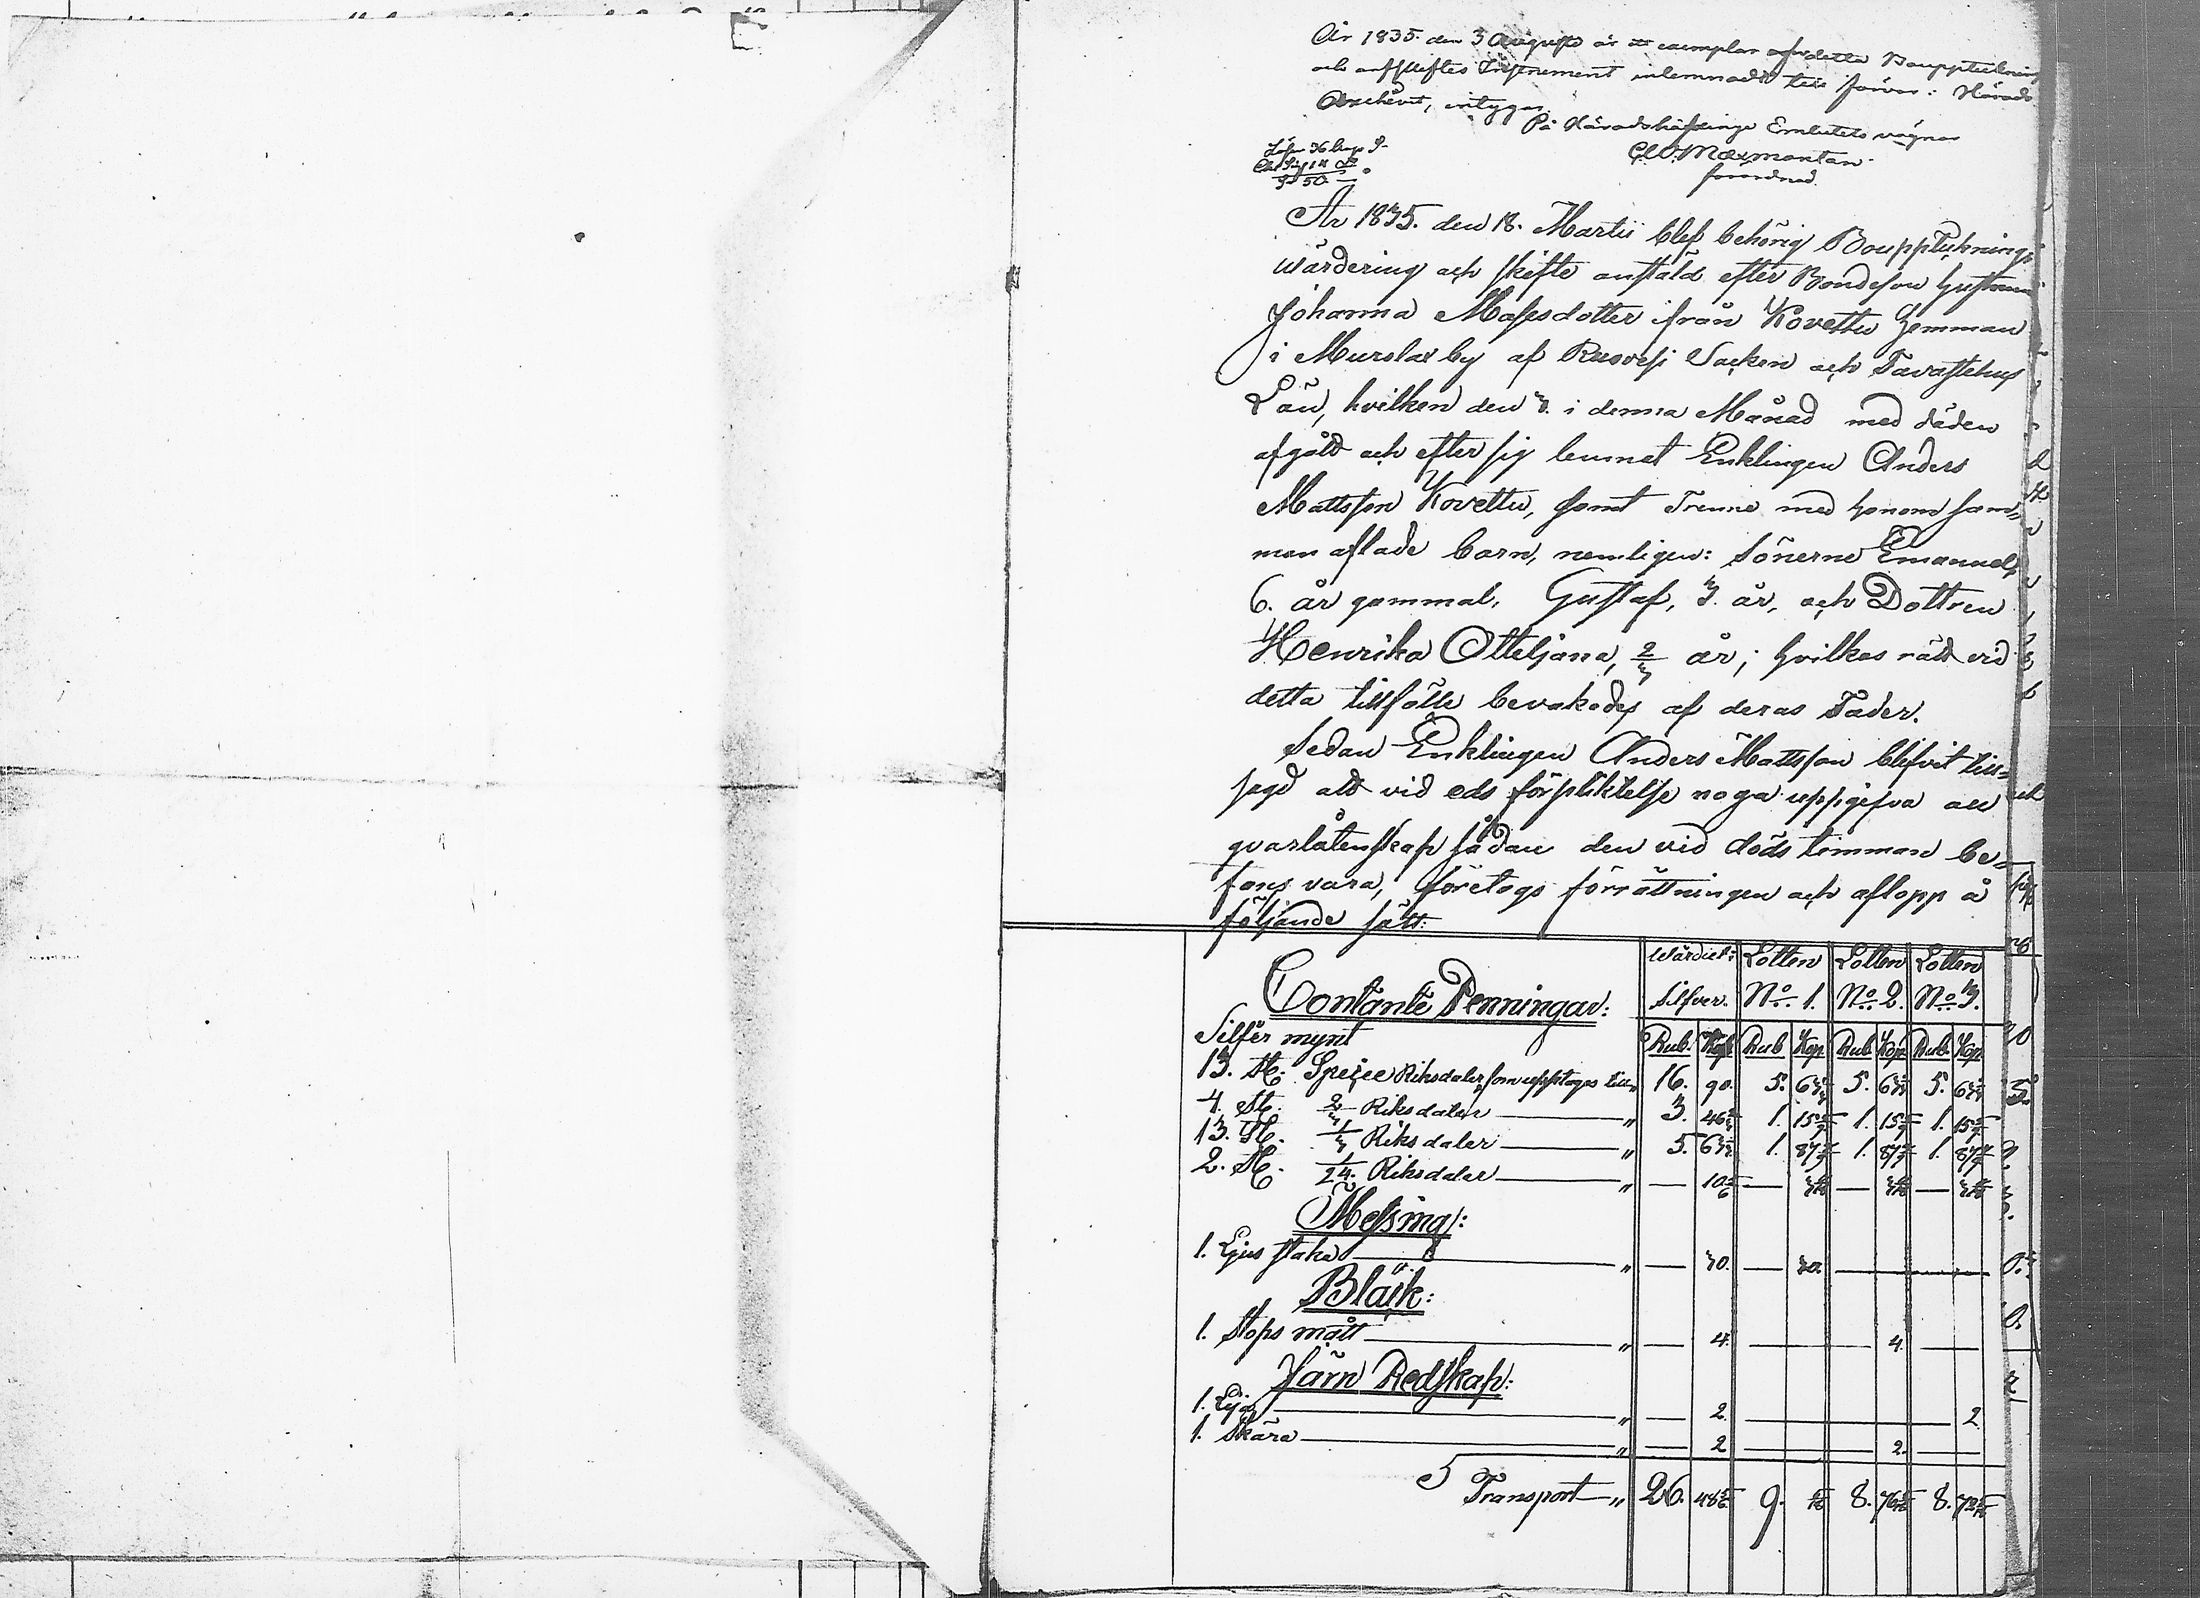 År 1835. den 3 Augusti är ett exemplar af detta Bouppteckning
och arfskiftes Instrument inlemnadt till förvar i Härads
Archivet, intygar.
På Häradshöfdinge Embetets vägnar
förordnad.
År 1835. den 18. Martii blef behörig Boupptecknings
wärdering och skifte anstäld efter Bondeson hustrun
Johanna Matsdotter från Kovettu Hemman
i Murola by af Ruovesi Socken och Tavastehus
Län, hvilken den 3. i denna Månad med döden
afgått och efter sig lemnat Enklingen Anders
Mattsson Kovettu, samt Trenne med honom sam-
man aflade barn, nemligen: Sönerne Emanuel,
6. år gammal, Gustaf, 3. år, och Dottren
Henrika Otteljana, 2/3 år; hvilkas rätt vid
detta tillfälle bevakades af deras Fader.
Sedan Enklingen Anders Mattsson blifvit till-
sagd att vid eds förpliktelse noga uppgifva all
qvarlåtenskap sådan den vid döds timman be-
fans vara, företogs förrättningen och aflopp å
följande sätt:
Wärdiet: Lotten Lotten Lotten
Contante Penningar: Silfver. No. 1. No. 2. No. 3.
Silfver mynt Rub. Kop. Rub Kop Rub. Kop Rub. Kop
13. St. Specie Riksdaler som upptages till " 16. 90. 5. 63 1/3 5. 63 1/3 5. 63 1/3
4. St. 2/3 Riksdaler " 3. 46 2/3 1. 15 5/9 1. 15 5/9 1. 15 5/9
13. St. 1/3 Riksdaler " 5. 63 1/3 1. 87 7/9 1. 87 7/9 1. 87 7/9
2. St. 1/24. Riksdaler " — 10 5/6
Messing:
1. Ljus staka " — 30. — 30.
Bläck:
1. Stops mått " — 4. 4.
Järn Redskap:
1. Lija " — 2. 2
1. Skära " — 2 2.
Transport " 26. 48 5/6 9. 8. 8.